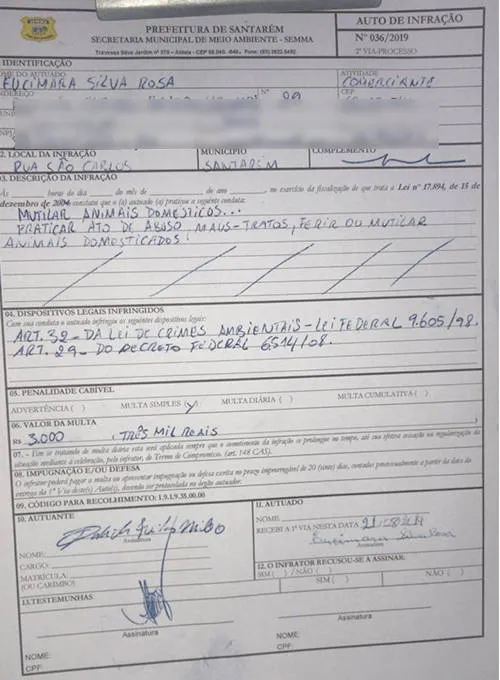 PREFEITURA DE SANTARÉM
SECRETARIA MUNICIPAL DE MEIO AMBIENTE - SEMMA
AUTO DE INFRAÇÃO
Nº 036/2019
2ª VIA-PROCESSO
IDENTIFICAÇÃO
NOME DO AUTUADO
EUCIMARA SILVA ROSA
ATIVIDADE
COMERCIANTE
ENDEREÇO
Nº
CEP
2. LOCAL DA INFRAÇÃO
RUA SÃO CARLOS
MUNICÍPIO
SANTARÉM
COMPLEMENTO
03. DESCRIÇÃO DA INFRAÇÃO
Às horas do dia , do mês de do ano , no exercício da fiscalização de que trata a Lei nº 17.894, de 15 de
dezembro de 2004 constatou que o (a) autuado (a) praticou a seguinte conduta:
MUTILAR ANIMAIS DOMESTICOS...
PRATICAR ATO DE ABUSO, MAUS-TRATOS, FERIR OU MUTILAR
ANIMAIS DOMESTICADOS.
04. DISPOSITIVOS LEGAIS INFRINGIDOS
Com sua conduta o autuado infringiu os seguintes dispositivos legais:
ART. 32 - DA LEI DE CRIMES AMBIENTAIS - LEI FEDERAL 9.605/98.
ART. 29 - DO DECRETO FEDERAL 6514/08.
05. PENALIDADE CABÍVEL
ADVERTÊNCIA ( ) MULTA SIMPLES ( ) MULTA DIÁRIA ( ) MULTA CUMULATIVA ( )
06. VALOR DA MULTA
R$ 3.000 TRÊS MIL REAIS
07. - Em se tratando de multa diária esta será aplicada sempre que o cometimento da infração se prolongue no tempo, até sua efetiva cessação ou regularização da
situação mediante a celebração, pelo infrator, de Termo de Compromisso. (art. 148 CAS).
08. IMPUGNAÇÃO E/OU DEFESA
O infrator poderá pagar a multa ou apresentar impugnação ou defesa escrita no prazo improrrogável de 20 (vinte) dias, contados da data da
entrega da 1ª Via deste(s) Auto(s), devendo ser protocolada no órgão autuador.
09. CÓDIGO PARA RECOLHIMENTO: 1.9.1.9.35.00.00
10. AUTUANTE
Assinatura
NOME:
CARGO:
MATRÍCULA:
(OU CARIMBO)
11. AUTUADO
NOME
RECEBI A 1ª VIA NESTA DATA
Assinatura
12. O INFRATOR RECUSOU-SE A ASSINAR:
SIM ( ) / NÃO ( )
SIM ( ) NÃO ( )
13. TESTEMUNHAS
Assinatura
Assinatura
NOME:
CPF:
NOME:
CPF: